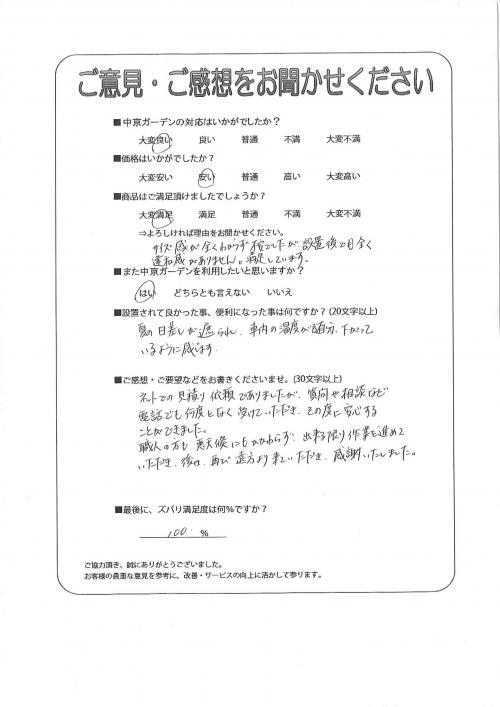 ご意見・ご感想をお聞かせください
■中京ガーデンの対応はいかがでしたか？
大変良い 良い 普通 不満 大変不満
■価格はいかがでしたか？
大変安い 安い 普通 高い 大変高い
■商品はご満足頂けましたでしょうか？
大変満足 満足 普通 不満 大変不満
⇒よろしければ理由をお聞かせください。
サイズ感が全くわからず でしたが設置後でも全く
違和感がありません。満足しています。
■また中京ガーデンを利用したいと思いますか？
はい どちらとも言えない いいえ
■設置されて良かった事、便利になった事は何ですか？(20文字以上)
夏の日差しが遮られ、車内の温度が随分、下がって
いるように感じます。
■ご感想・ご要望などをお書きくださいませ。(30文字以上)
ネットでの見積り依頼でありましたが、質問や相談など
電話でも何度となく受けていただき、その度に安心する
ことができました。
職人の方も悪天候にもかかわらず、出来る限り作業を進めて
いただき、後日、再び遠方より来ていただき、感謝いたしました。
■最後に、ズバリ満足度は何%ですか？
100 %
ご協力頂き、誠にありがとうございました。
お客様の貴重な意見を参考に、改善・サービスの向上に活かして参ります。